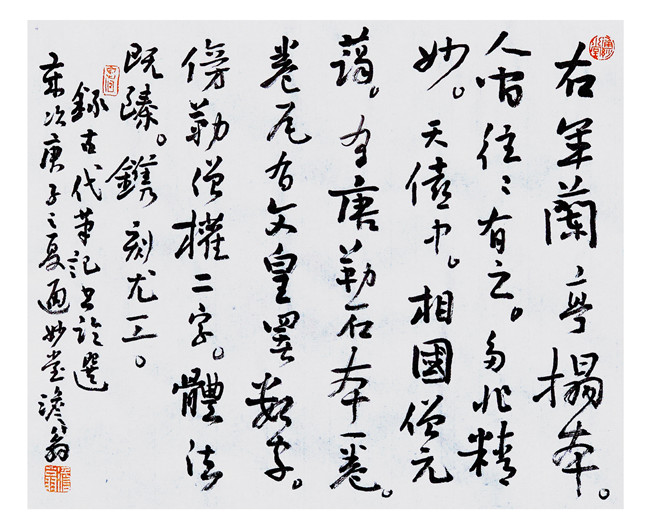 右军蘭亭搨本。
人間往々有之。多非精
妙。天僖中。相國僧元
藹。有唐勒石本一卷。
卷尾有文皇署敕字。
傍勒僧權二字。體法
既臻。鐫刻尤工。
錄古代筆記書論選
歲次庚子之夏通妙堂澹翁